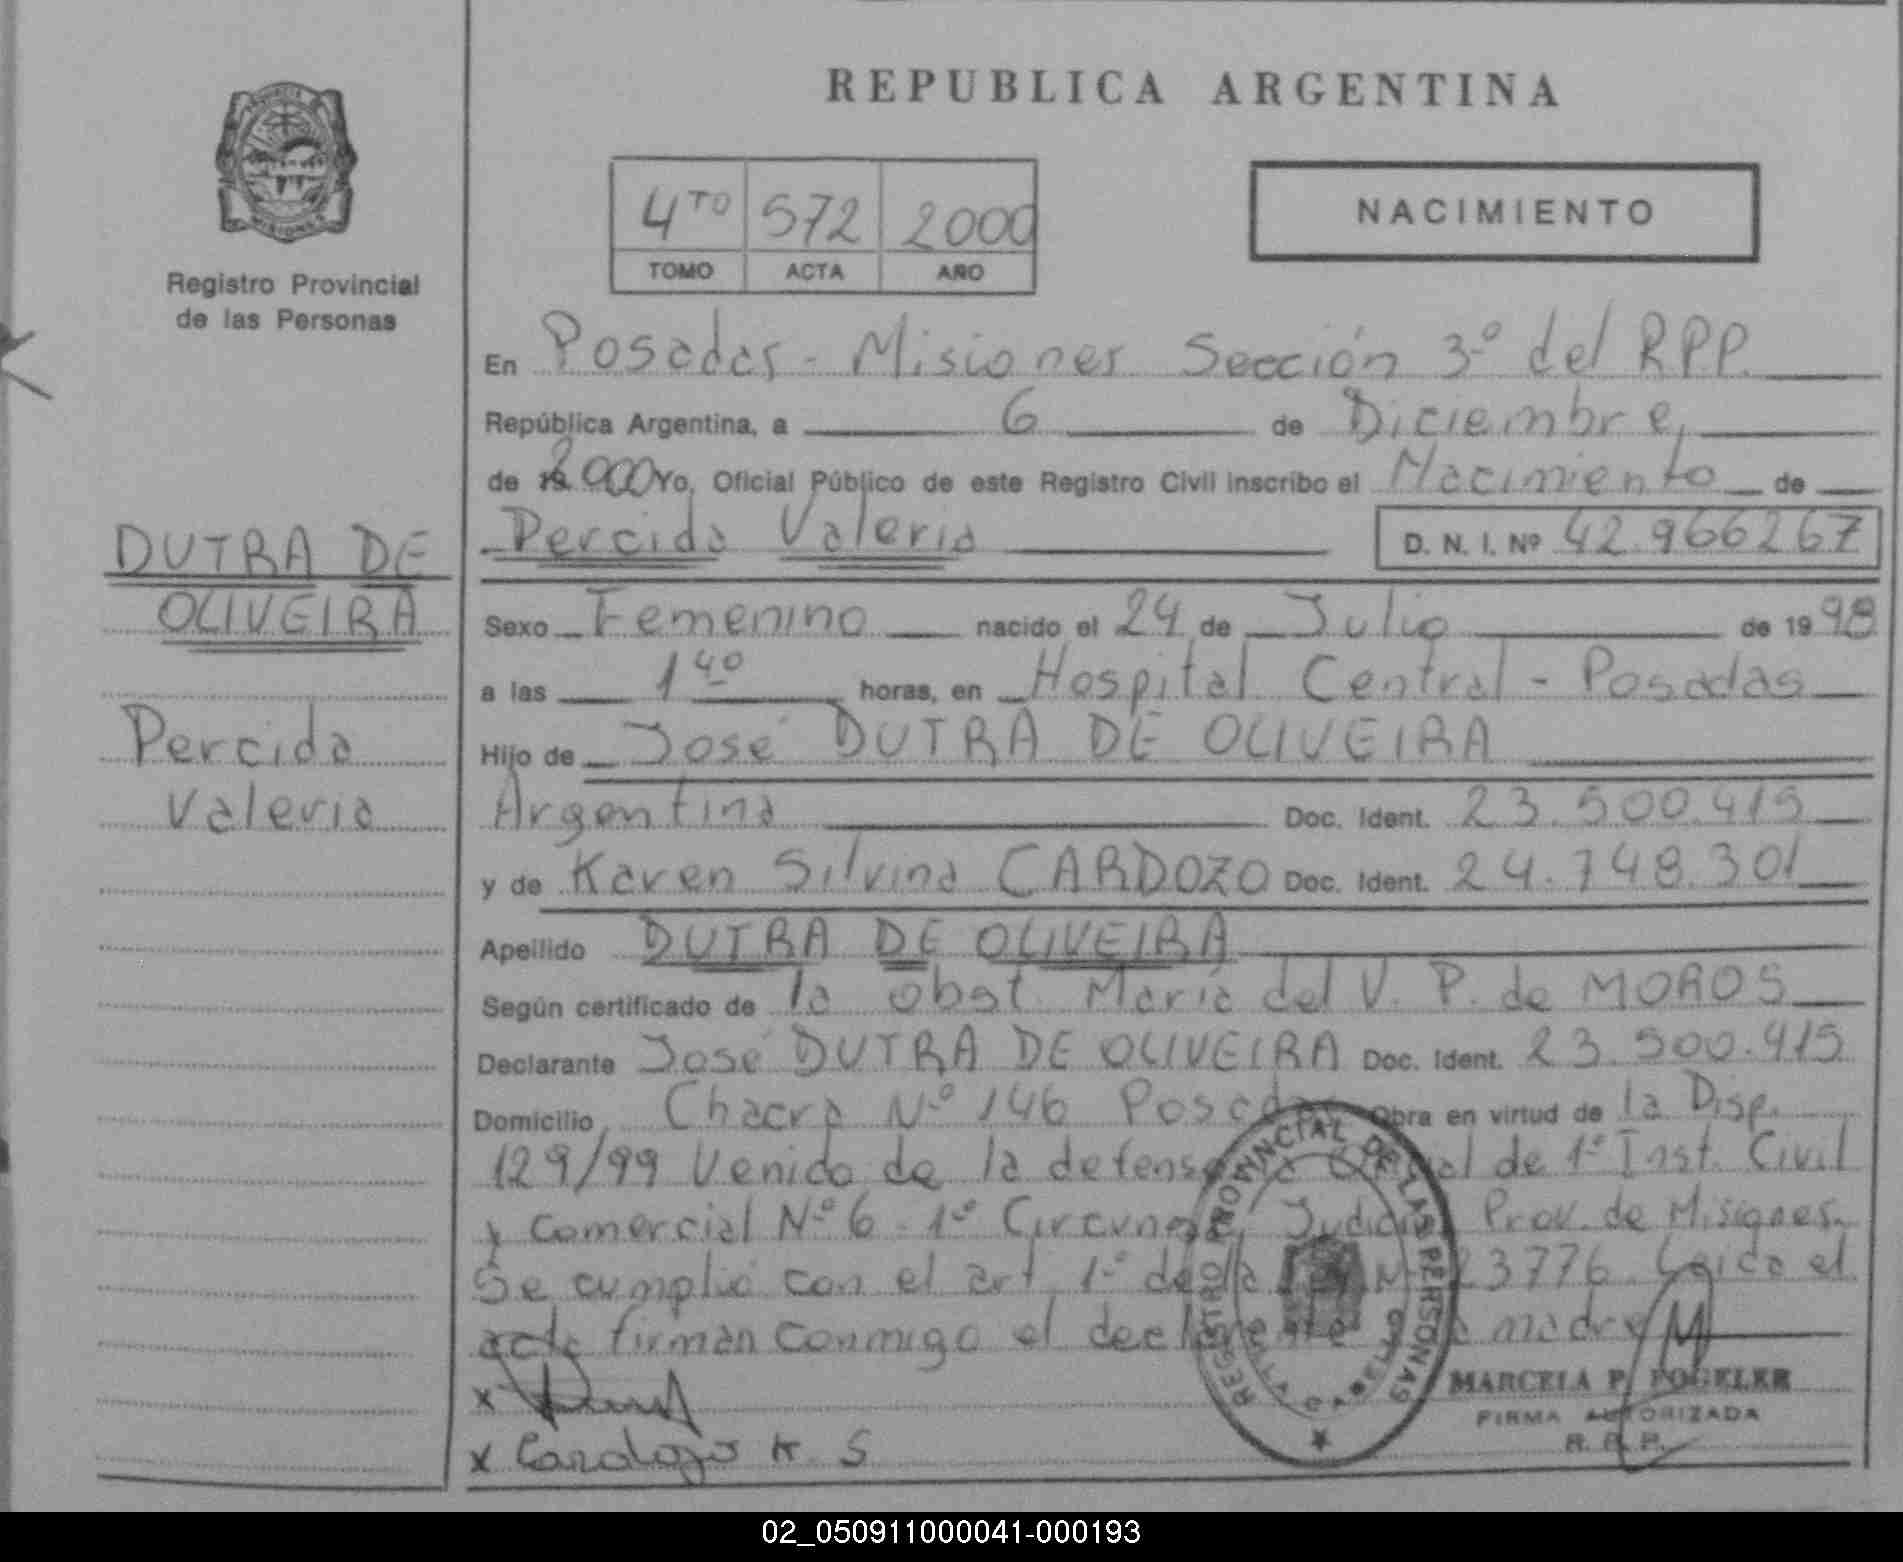 REPUBLICA ARGENTINA
PROVINCIA DE MISIONES
Registro Provincial
de las Personas
4TO 572 2000
TOMO ACTA AÑO
NACIMIENTO
En Posadas - Misiones Sección 3º del R.P.P.
República Argentina, a 6 de Diciembre,
de 2000 Yo, Oficial Público de este Registro Civil inscribo el Nacimiento de
Percida Valeria D. N. I. Nº 42.966267
DUTRA DE
OLIVEIRA
Percida
Valeria
Sexo Femenino nacido el 24 de Julio de 1998
a las 1 40 horas, en Hospital Central - Posadas
Hijo de José DUTRA DE OLIVEIRA
Argentina Doc. Ident. 23.500.415
y de Karen Silvina CARDOZO Doc. Ident. 24.748.301
Apellido DUTRA DE OLIVEIRA
Según certificado de la obst. María del V. P. de MOROS
Declarante José DUTRA DE OLIVEIRA Doc. Ident. 23.500.415
Domicilio Chacra Nº 146 Posadas Obra en virtud de la Disp.
129/99 Venido de la defensoría Oficial de 1º Inst. Civil
y Comercial Nº 6 - 1º Circuns. Judicial Prov. de Misiones.
Se cumplió con el art. 1º de la Ley Nº 23776. Leida el
acta firman conmigo el declarante y la madre
x
x Cardozo K. S
REGISTRO PROVINCIAL DE LAS PERSONAS
MARCELA P. FOGELER
FIRMA AUTORIZADA
R. P. P.
02_050911000041-000193